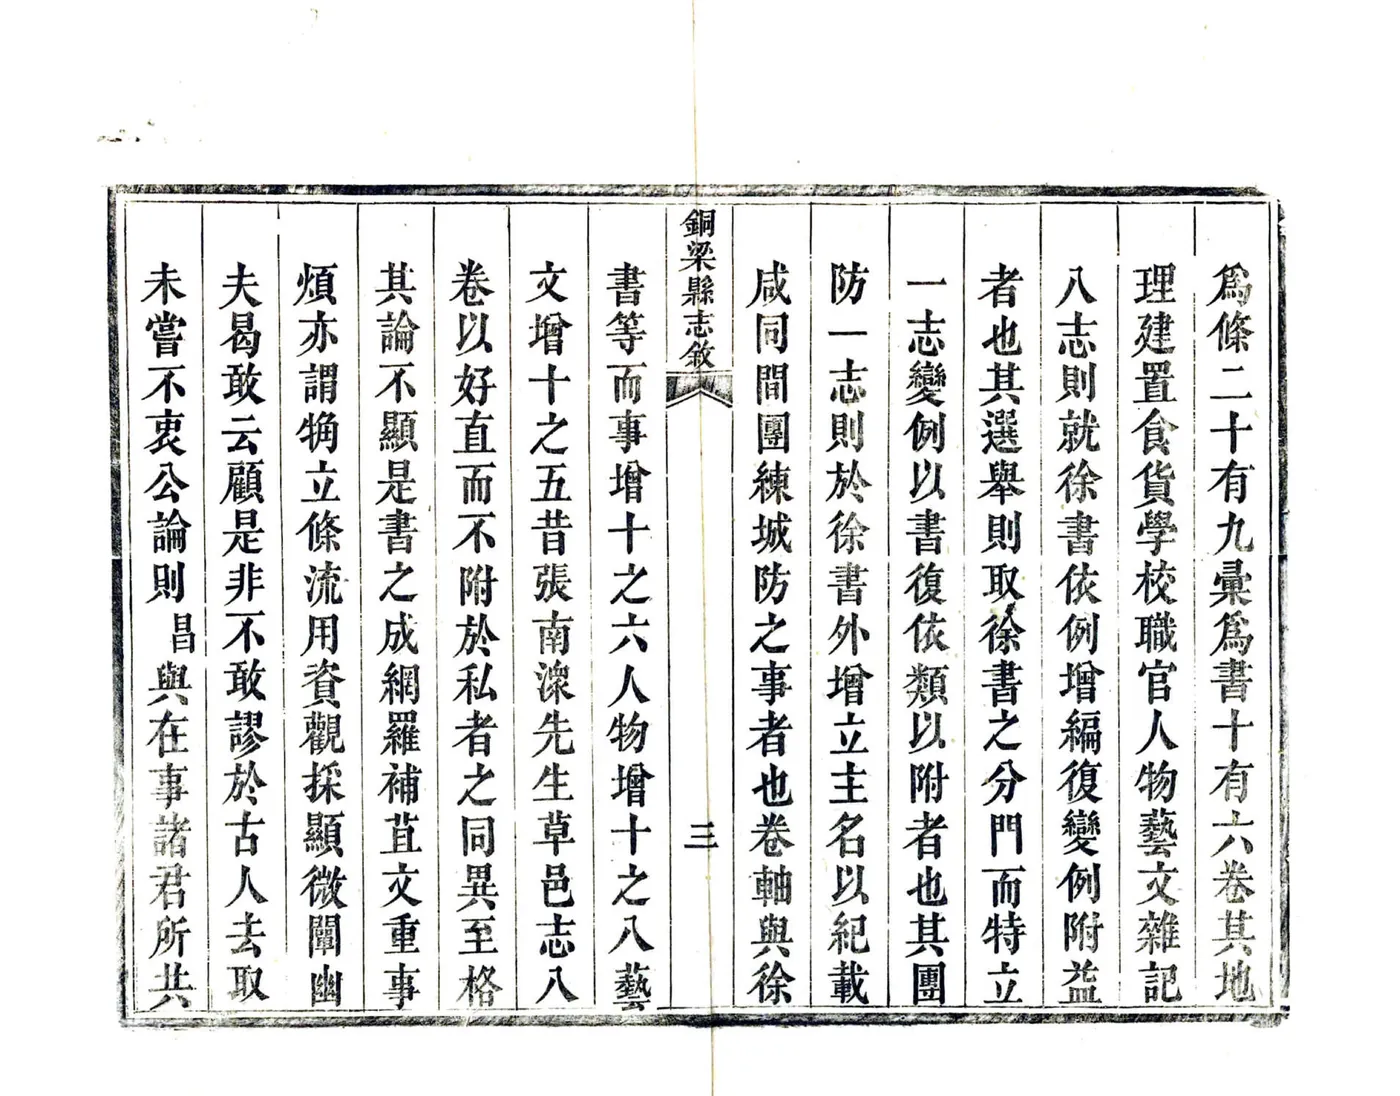 爲條二十有九彙爲書十有六卷其地
理建置食貨學校職官人物藝文雜記
八志則就徐書依例增編復變例附益
者也其選舉則取徐書之分門而特立
一志變例以書復依類以附者也其團
防一志則於徐書外增立主名以紀載
咸同間團練城防之事者也卷軸與徐
銅梁縣志敘
三
書等而事增十之六人物增十之八藝
文增十之五昔張南溁先生草邑志八
卷以好直而不附於私者之同異至格
其論不顯是書之成網羅補苴文重事
煩亦謂觕立條流用資觀採顯微闡幽
夫曷敢云顧是非不敢謬於古人去取
未嘗不衷公論則昌與在事諸君所共